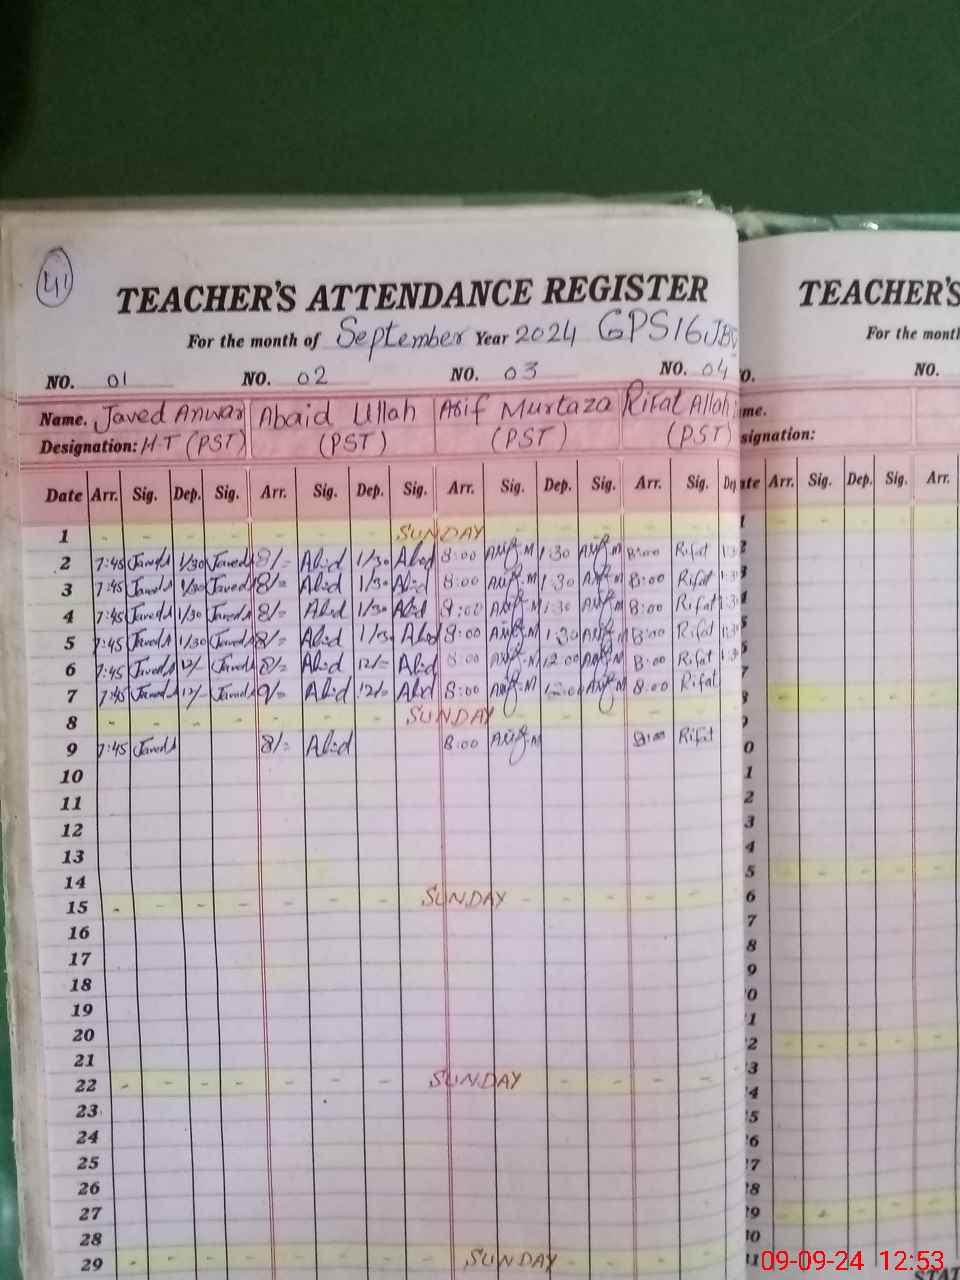 41
TEACHER'S ATTENDANCE REGISTER
For the month of September Year 2024 GPS 16 JB
NO. 01 NO. 02 NO. 03 NO. 04
Name. Javed Anwar Abaid Ullah Asif Murtaza Rifat Allah
Designation: H.T (PST) (PST) (PST) (PST)
Date Arr. Sig. Dep. Sig. Arr. Sig. Dep. Sig. Arr. Sig. Dep. Sig. Arr. Sig. Dep
1 - - - - - - - SUNDAY - - - - -
2 7:45 Javed 1/30 Javed 8/= Abid 1/30 Abid 8:00 Asif.M 1:30 Asif.M 8:00 Rifat 1:3
3 7:45 Javed 1/30 Javed 8/= Abid 1/30 Abid 8:00 Asif.M 1:30 Asif.M 8:00 Rifat 1:3
4 7:45 Javed 1/30 Javed 8/= Abid 1/30 Abid 8:00 Asif.M 1:30 Asif.M 8:00 Rifat 1:3
5 7:45 Javed 1/30 Javed 8/= Abid 1/30 Abid 8:00 Asif.M 1:30 Asif.M 8:00 Rifat 1:3
6 7:45 Javed 12/- Javed 8/= Abid 12/= Abid 8:00 Asif.M 12:00 Asif.M 8:00 Rifat 1:3
7 7:45 Javed 12/- Javed Abid 12/= Abid 8:00 Asif.M 12:00 Asif.M 8:00 Rifat
8 - - - - - - - SUNDAY - - - - -
9 7:45 Javed 8/= Abid 8:00 Asif.M 8:00 Rifat
10
11
12
13
14
15 - - - - - - - SUNDAY - - - - -
16
17
18
19
20
21
22 - - - - - - - SUNDAY - - - -
23
24
25
26
27
28
29 - - - - - - - SUNDAY - - -
TEACHER'S
For the month
NO. NO.
me.
signation:
te Arr. Sig. Dep. Sig. Arr.
09-09-24 12:53